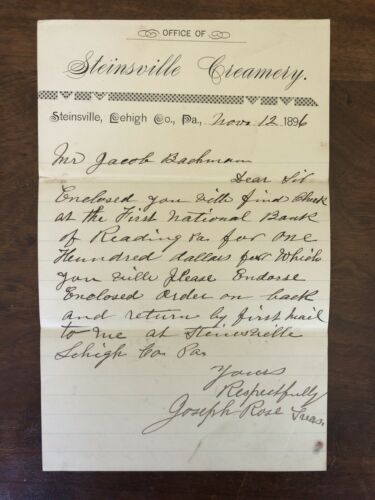 OFFICE OF
Steinsville Creamery.
Steinsville, Lehigh Co., Pa., Nov. 12 1896
Mr Jacob Bachman
Dear Sir
Enclosed you will find Check
at the First National Bank
of Reading Pa for One
Hundred dollars for Which
you will Please Endorse
Enclosed Order on back
and return by first mail
to me at Steinsville
Lehigh Co Pa
Yours
Respectfully
Joseph Rose Treas.